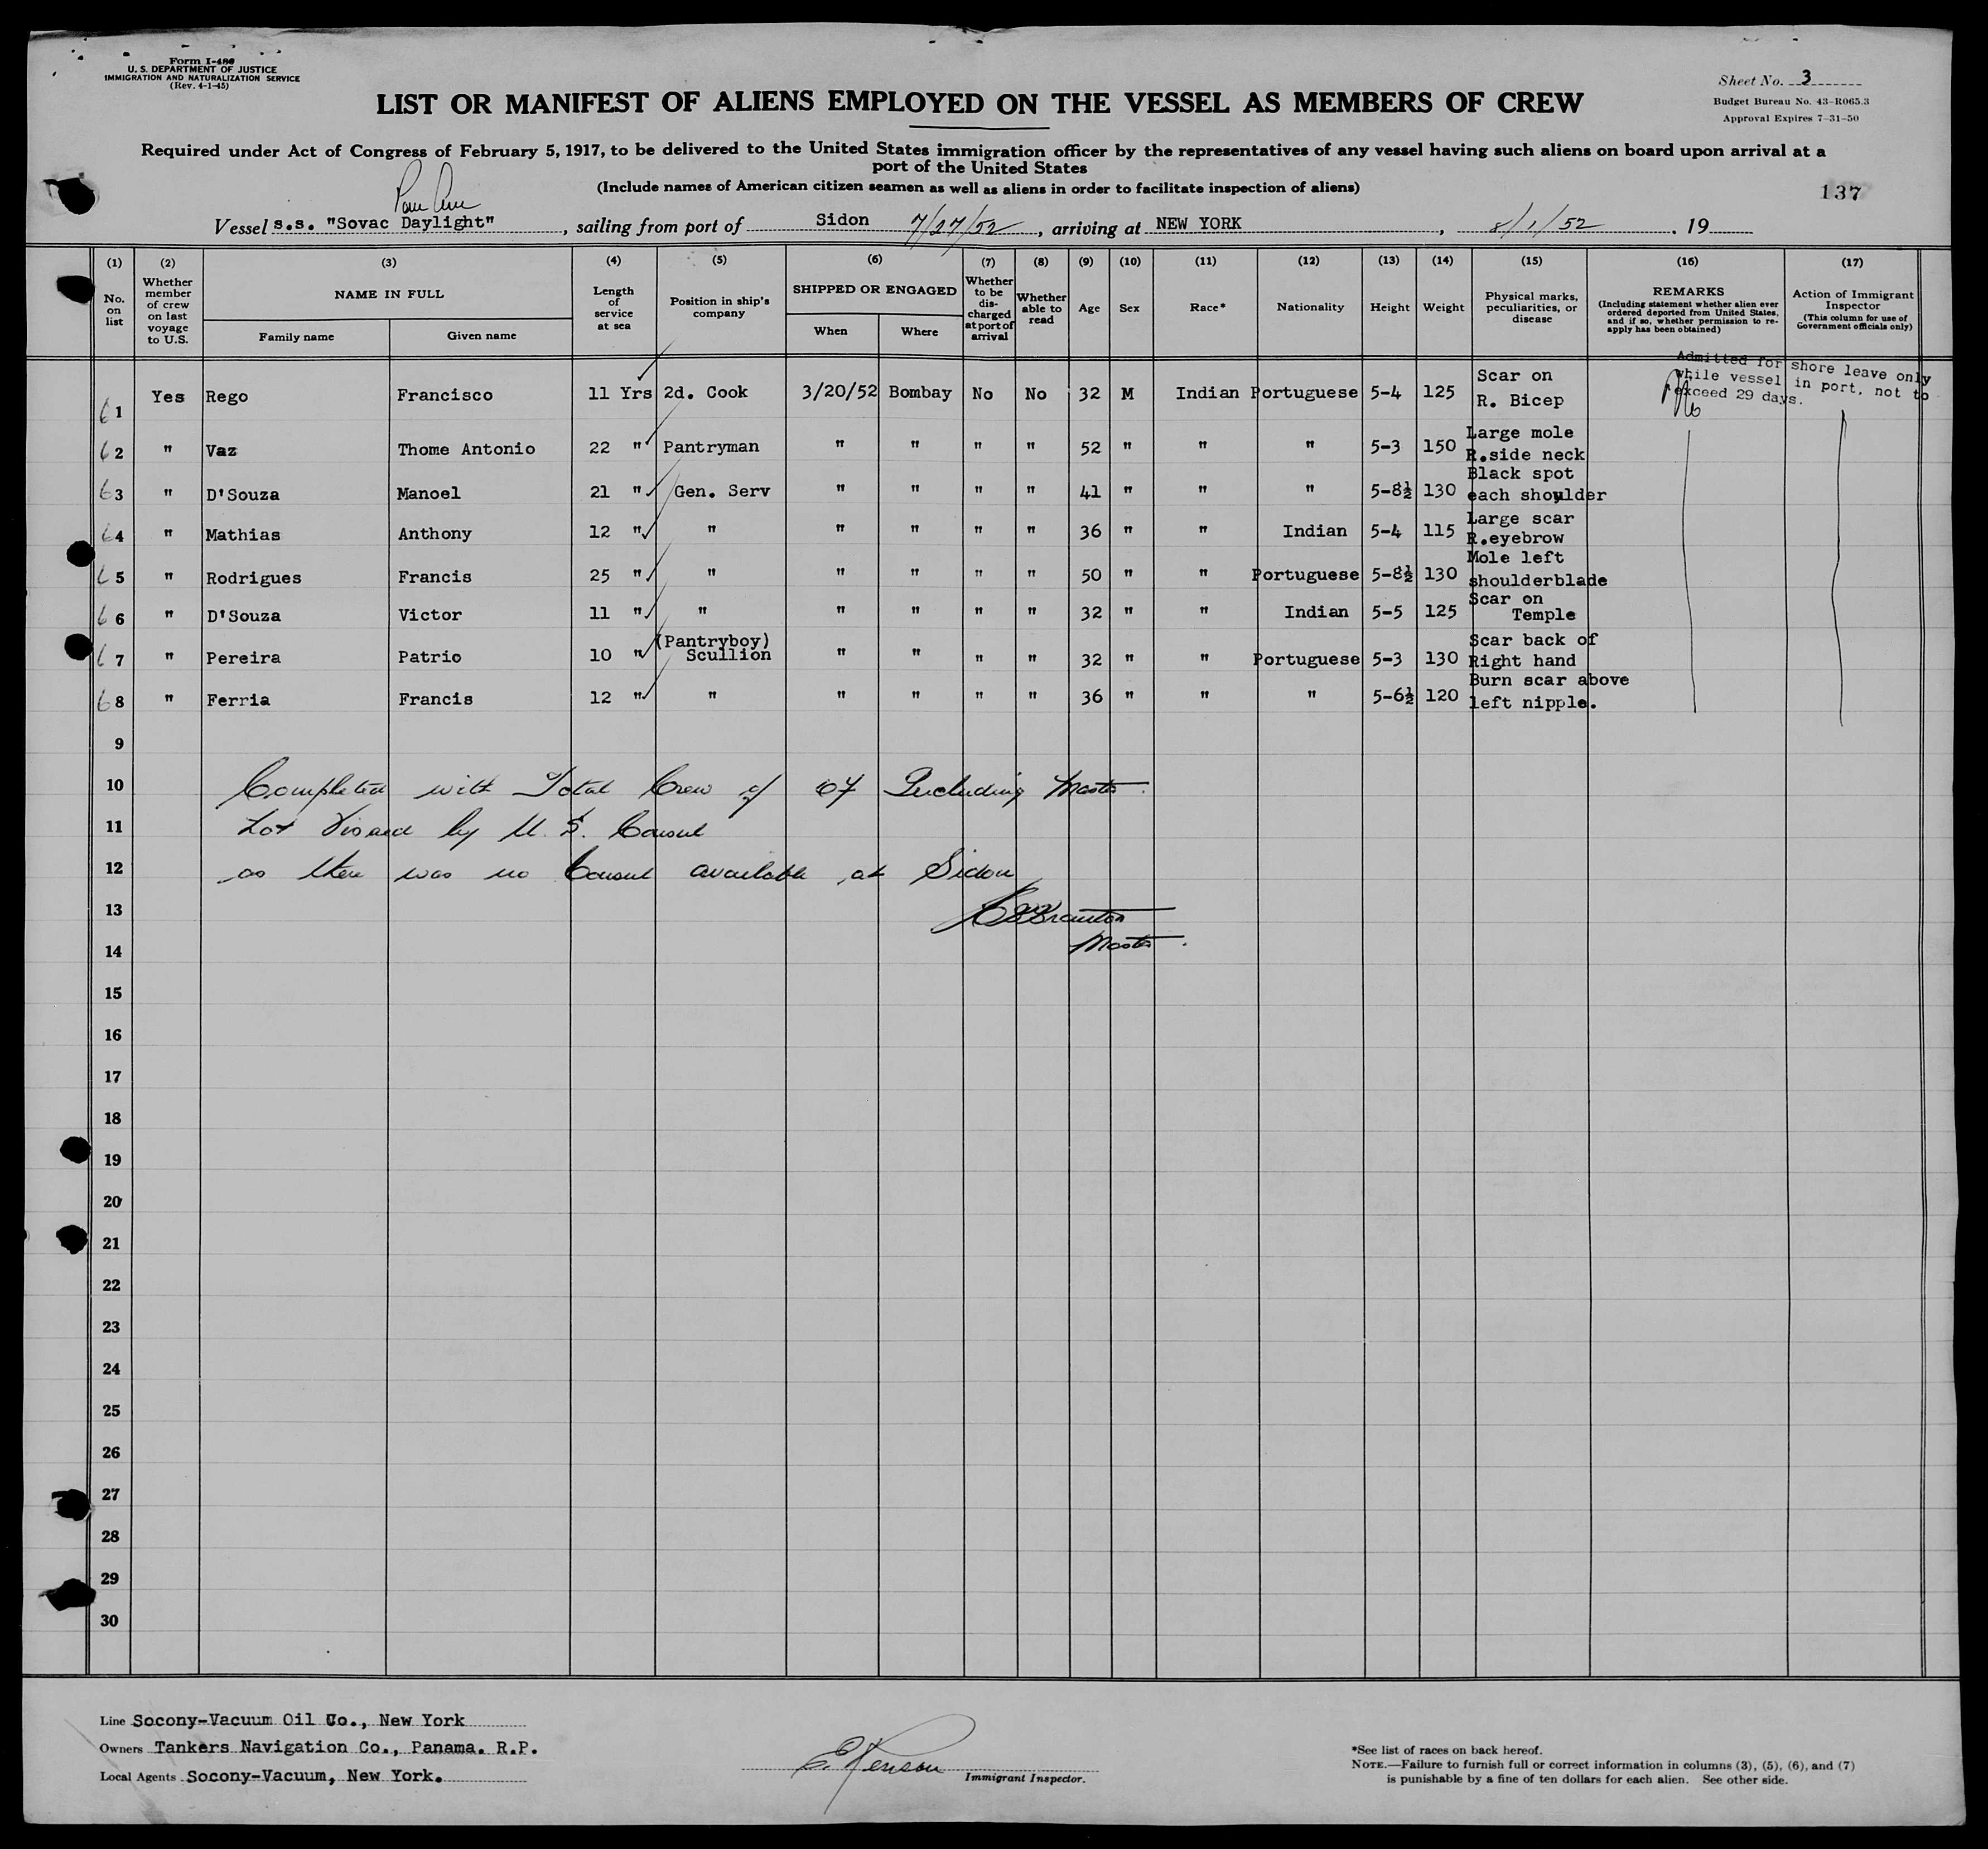 Form I-480
U. S. DEPARTMENT OF JUSTICE
IMMIGRATION AND NATURALIZATION SERVICE
(Rev. 4-1-45)
Sheet No. 3
Budget Bureau No. 43-R065.3
Approval Expires 7-31-50
LIST OR MANIFEST OF ALIENS EMPLOYED ON THE VESSEL AS MEMBERS OF CREW
Required under Act of Congress of February 5, 1917, to be delivered to the United States immigration officer by the representatives of any vessel having such aliens on board upon arrival at a
port of the United States
(Include names of American citizen seamen as well as aliens in order to facilitate inspection of aliens)
137
Vessel s.s. "Sovac Daylight", sailing from port of Sidon 7/27/52, arriving at NEW YORK, 8/1/52. 19
(1) (2) (3) (4) (5) (6) (7) (8) (9) (10) (11) (12) (13) (14) (15) (16) (17)
No. on list
Whether member of crew on last voyage to U.S.
NAME IN FULL
Family name Given name
Length of service at sea
Position in ship's company
SHIPPED OR ENGAGED
When Where
Whether to be discharged at port of arrival
Whether able to read
Age Sex Race* Nationality Height Weight
Physical marks, peculiarities, or disease
REMARKS
(Including statement whether alien ever ordered deported from United States, and if so, whether permission to re-apply has been obtained)
Action of Immigrant Inspector
(This column for use of Government officials only)
Admitted for shore leave only
while vessel in port, not to
exceed 29 days.
61 Yes Rego Francisco 11 Yrs 2d. Cook 3/20/52 Bombay No No 32 M Indian Portuguese 5-4 125 Scar on R. Bicep
62 " Vaz Thome Antonio 22 " Pantryman " " " " 52 " " " 5-3 150 Large mole R.side neck
63 " D'Souza Manoel 21 " Gen. Serv " " " " 41 " " " 5-8½ 130 Black spot each shoulder
64 " Mathias Anthony 12 " " " " " " 36 " " Indian 5-4 115 Large scar R.eyebrow
65 " Rodrigues Francis 25 " " " " " " 50 " " Portuguese 5-8½ 130 Mole left shoulderblade
66 " D'Souza Victor 11 " " " " " " 32 " " Indian 5-5 125 Scar on Temple
67 " Pereira Patrio 10 " (Pantryboy) Scullion " " " " 32 " " Portuguese 5-3 130 Scar back of Right hand
68 " Ferria Francis 12 " " " " " " 36 " " " 5-6½ 120 Burn scar above left nipple.
9
10 Completed with Total Crew of 67 Including Master.
11 Not Visaed by U. S. Consul
12 as there was no Consul available at Sidon
13
14 Master.
15
16
17
18
19
20
21
22
23
24
25
26
27
28
29
30
Line Socony-Vacuum Oil Co., New York
Owners Tankers Navigation Co., Panama. R.P.
Local Agents Socony-Vacuum, New York.
Immigrant Inspector.
*See list of races on back hereof.
NOTE.—Failure to furnish full or correct information in columns (3), (5), (6), and (7)
is punishable by a fine of ten dollars for each alien. See other side.